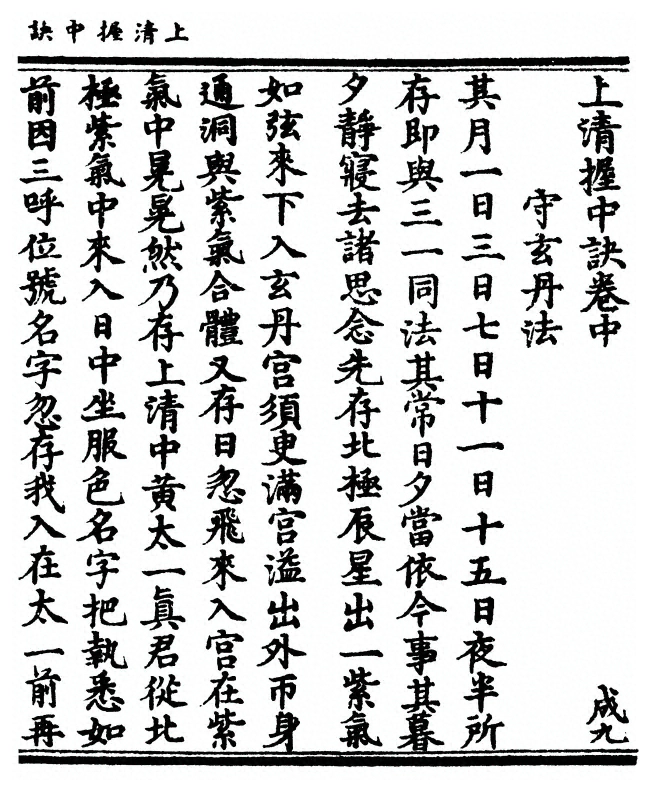 上清握中訣
上清握中訣卷中　成九
守玄丹法
其月一日三日七日十一日十五日夜半所
存即與三一同法其常日夕當依今事其暮
夕靜寢去諸思念先存北極辰星出一紫氣
如弦來下入玄丹宮須臾滿宮溢出外帀身
通洞與紫氣合體又存日忽飛來入宮在紫
氣中晃晃然乃存上清中黃太一眞君從北
極紫氣中來入日中坐服色名字把執悉如
前因三呼位號名字忽存我入在太一前再